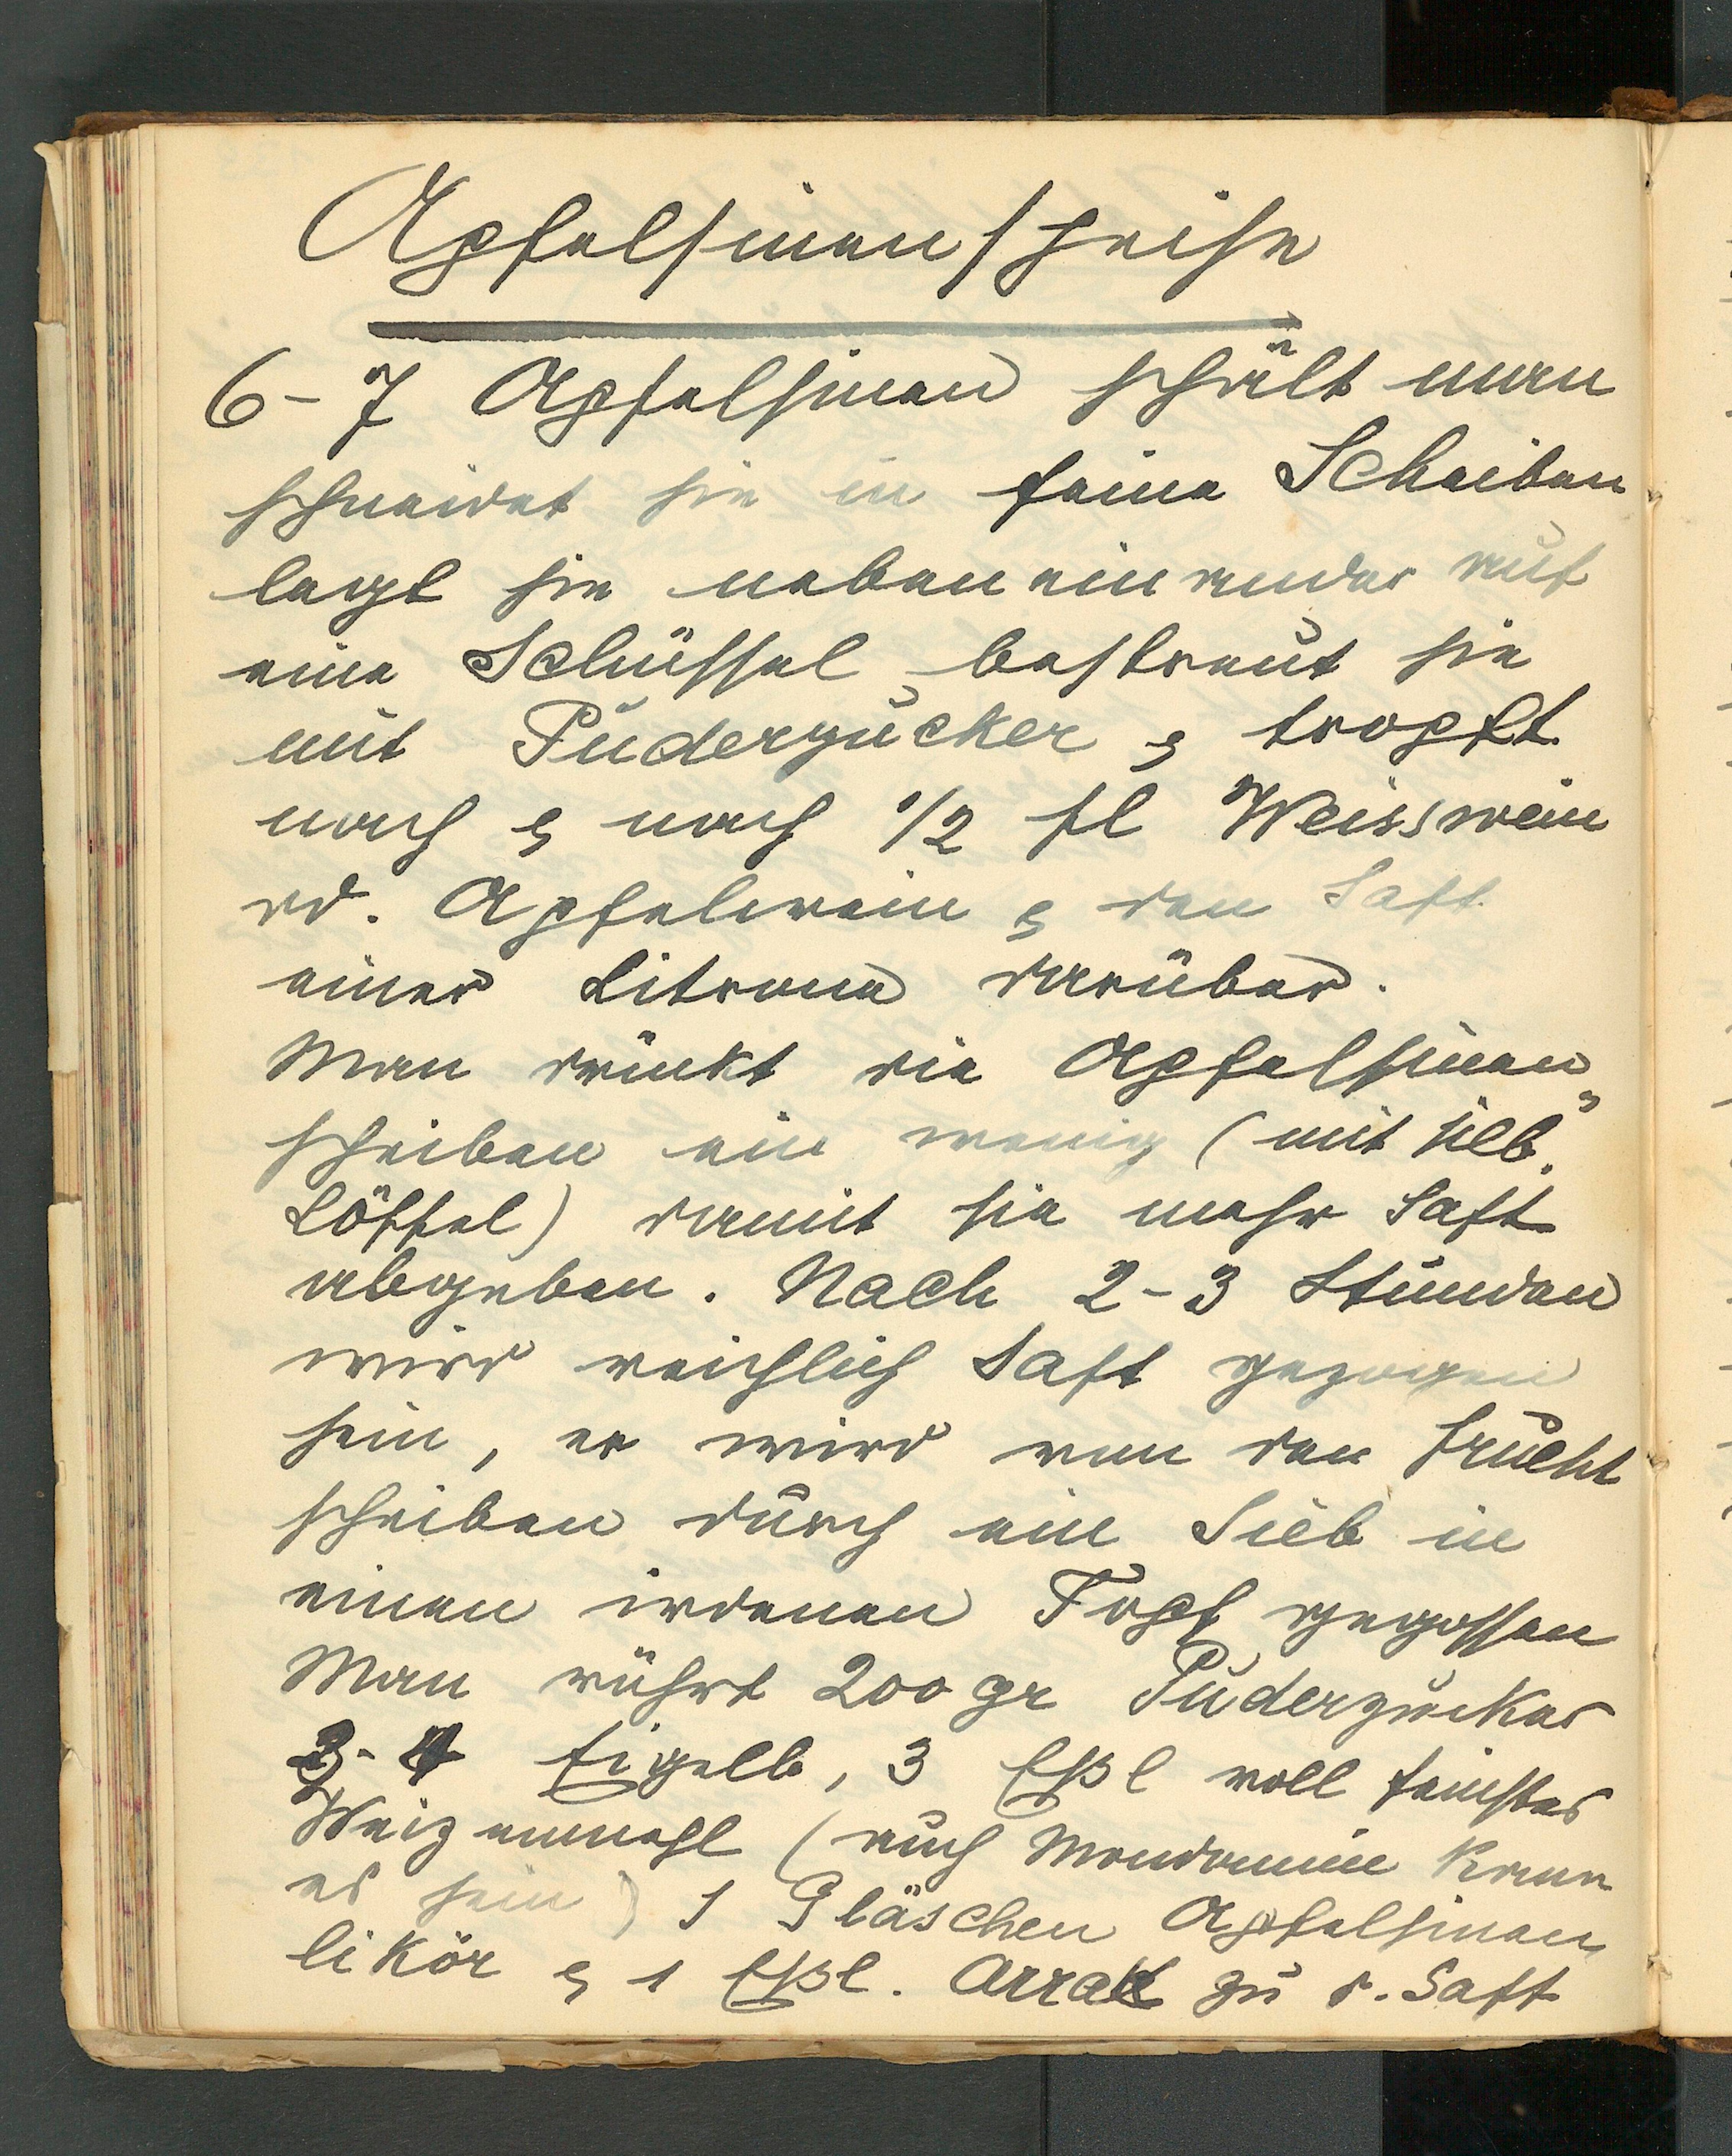 Apfelsinenspeise
6-7 Apfelsinen schält man
schneidet sie in feine Scheiben
legt sie nebeneinander auf
eine Schüssel bestreut sie
mit Puderzucker & tropft
nach & nach 1/2 Fl Weisswein
od. Apfelwein & den Saft
einer Citrone darüber.
Man drückt die Apfelsinen„
scheiben ein wenig (mit silb.
Löffel) damit sie mehr Saft
abgeben. Nach 2-3 Stunden
wird reichlich Saft gezogen
sein, er wird von den Frucht
scheiben durch ein Sieb in
einen irdenen Topf gegossen
Man rührt 200 gr Puderzucker
3-4 Eigelb, 3 Eßl voll feinstes
Weizenmehl (auch Mondamin kann
es sein) 1 Gläschen Apfelsinen
likör & 1 Eßl. Arrak zu d. Saft